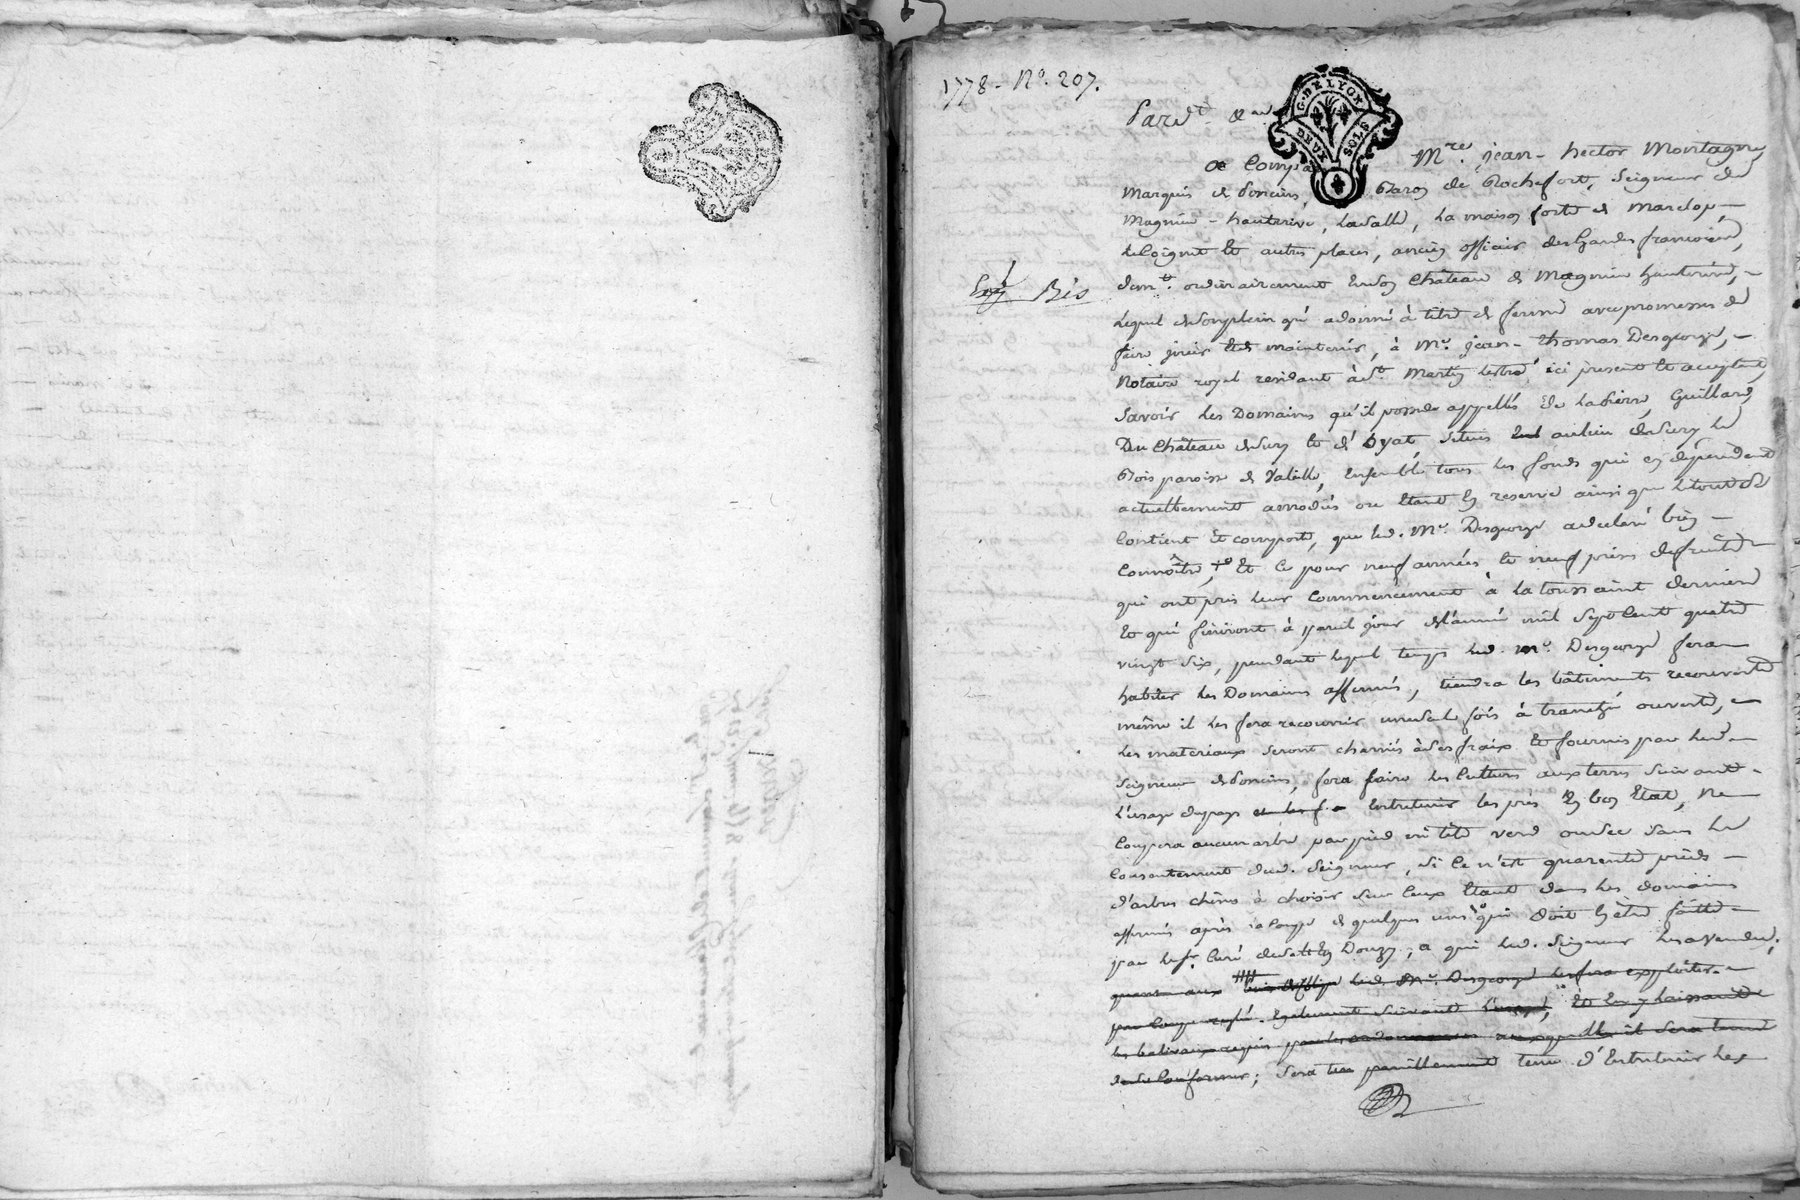 1778 - No. 207.
G. DE LYON
DEUX SOLS
Pard.t
a Compa Mre. jean - hector Montagny
Marquis de Poncins, Baron de Rochefort, Seigneur de
Magnieu - hauterive, Lasalle, La maison forte de Marclop, -
et autres places, ancien officier des Gardes francoises,
dem.t ordinairement en son Château de Magnieu hauterive, -
Bis
Lequel de son plein gré a donné à titre de ferme avec promesses de
faire jouir et maintenir, à Me. jean - thomas Desgeorge, -
Notaire royal residant à St. Martin Lestra ici present et acceptant,
Savoir les Domaines qu'il possede appellés de La Pierre, Guillard,
Du Château de Sury et d' Oyat situés au lieu de Sury Le
Bois paroisse de Valeille, Ensemble tous les fonds qui en dépendent
actuellement amodiés ou étant en reserve ainsi que le tout se
Contient et comporte, que led. Me. Desgeorge a declaré bien -
Connoître, Et Ce pour neuf années et neuf prises de fruits -
qui ont pris leur Commencement à la toussaint derniere
Et qui finiront à pareil jour de l'année mil Sept Cent quatre
vingt Six, pendant lequel temps led. Me. Desgeorge fera
habiter les Domaines affermés, tiendra les bâtiments recouverts
même il les fera recouvrir une seule fois à tranché ouverte, -
les materiaux seront charriés à ses fraix Et fournis par led. -
Seigneur de Poncins, fera faire les Cultures aux terres Suivant -
L'usage du pays Entretenir les prés En bon Etat, Ne
Coupera aucun arbre par pied ni tête verd ou sec sans le
Consentement dud. Seigneur, Si Ce n'est quarente pieds -
d'arbres chênes à choisir sur Ceux Etant dans les domaines
affermés après la Coupe de quelques uns qui doit En être faitte -
par le Sr. Curé de Donzy, a qui led. Seigneur les a vendu,
quant aux led. Me. Desgeorge les fera exploiter -
par Coupe Egalement Suivant L'usage, Et En y laissant
les balivaux requis par les ordonnances auxquelles il Sera tenu
de se Conformer; Sera pareillement tenu d'Entretenir les